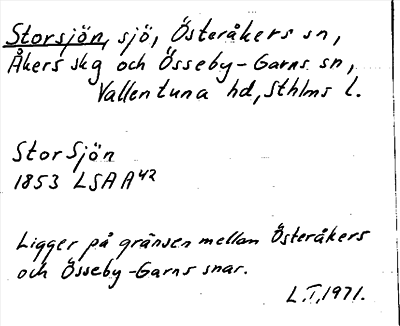 Storsjön, sjö, Österåkers sn,
Åkers skg och Össeby-Garns sn,
Vallentuna hd, Sthlms l.
Storsjön
1853 LSA A42
Ligger på gränsen mellan Österåkers
och Össeby-Garns snar.
L.T, 1971.